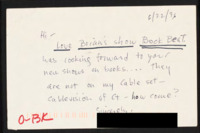 6/22/94
Hi -
Love Brian's show Book Beat.
Was looking forward to your
new shows on books... They
are not on my cable set -
cablevision of Ct. - how come?
Sincerely,
O-BK